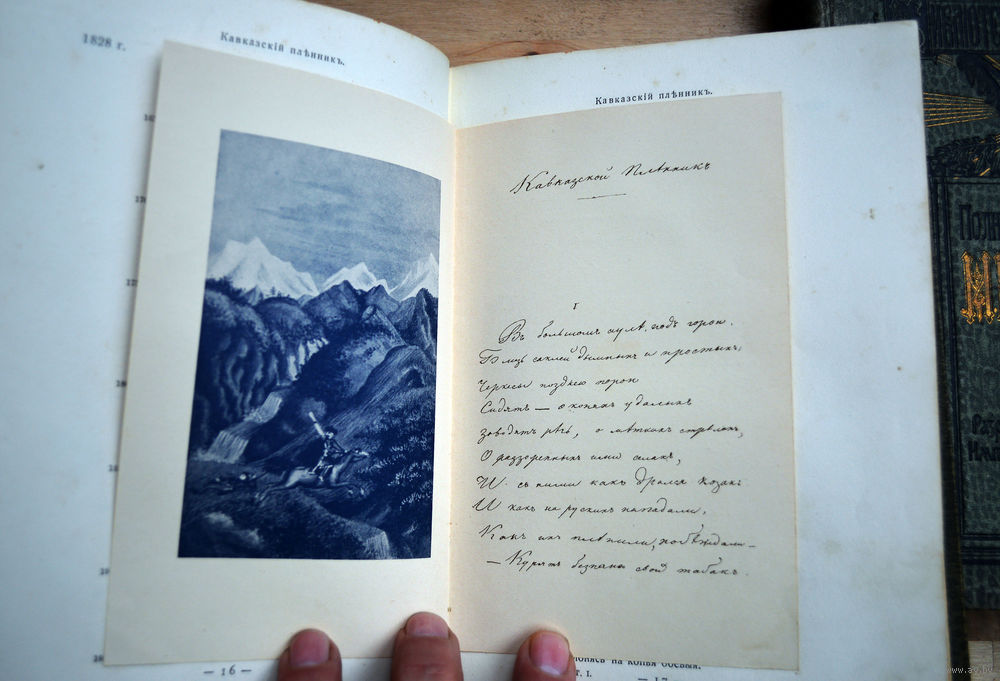 1828 г.
Кавказскій плѣнникъ.
— 16 —
Кавказскій плѣнникъ.
Кавказской Плѣнникъ
I
Въ большомъ аулѣ, подъ горою,
Близь саклей дымныхъ и простыхъ,
Черкесы позднею порою
Сидятъ — о коняхъ удалыхъ
Заводятъ рѣчь, о мѣткихъ стрѣлахъ,
О раззоренныхъ ими селахъ,
И съ ними какъ дрался козакъ
И какъ на рускихъ нападали,
Какъ ихъ плѣнили, побѣждали —
— Курятъ безпечно свой табакъ.
на копья боевыя.
т. I.
— 17
Полн
www.ay.by